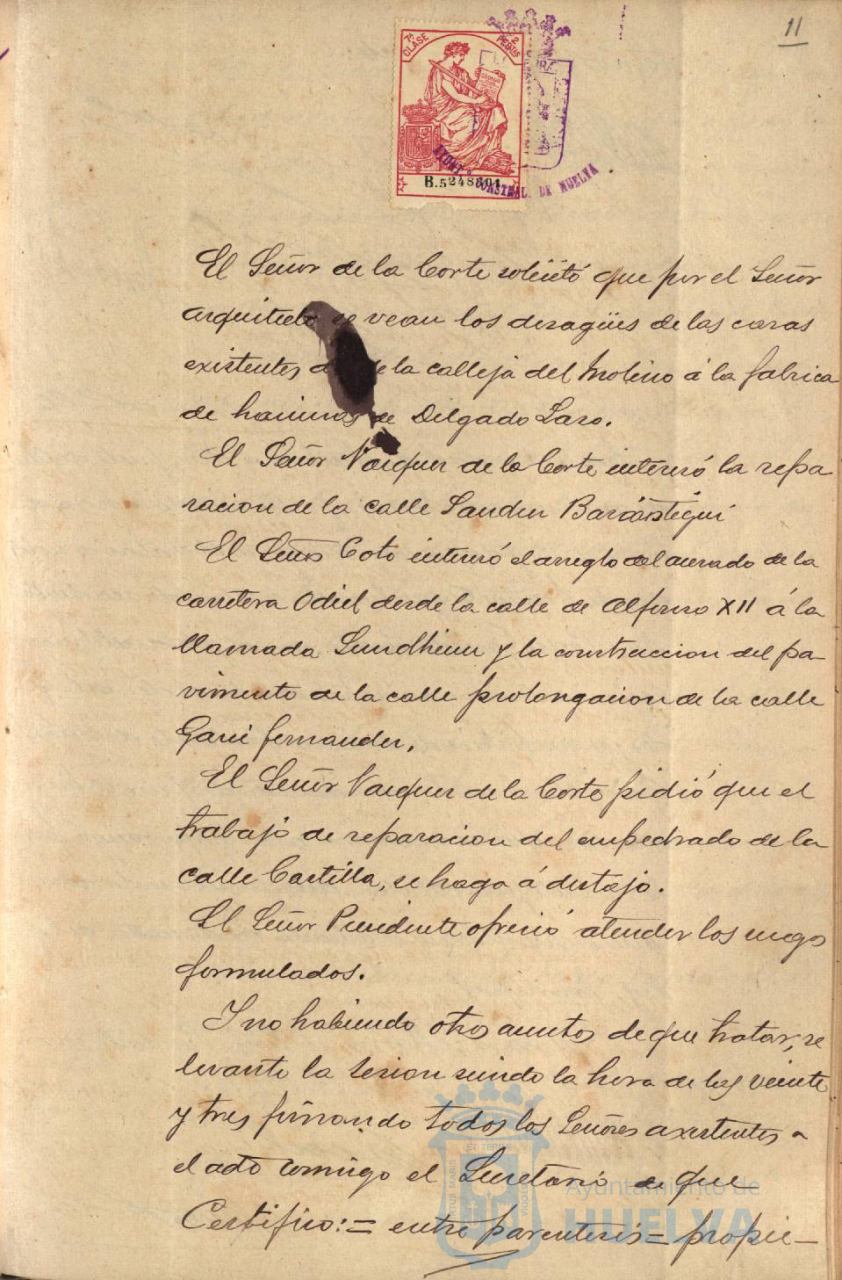 11
7ª CLASE
2 PESETAS
B.5248601
AYUNTº CONSTNAL. DE HUELVA
El Señor de la Corte solicitó que por el Señor
arquitecto se vean los desagües de las casas
existentes de la calleja del Molino á la fabrica
de harinas de Delgado Laso.
El Señor Vazquez de la Corte interesó la repa
racion de la calle Sanchez Barcaistegui
El Señor Coto interesó el arreglo del acerado de la
carretera Odiel desde la calle de Alfonso XII á la
llamada Sundheim y la construccion del pa-
vimento de la calle prolongacion de la calle
Garci fernandez.
El Señor Vazquez de la Corte pidió que el
trabajo de reparacion del empedrado de la
calle Castilla, se haga á destajo.
El Señor Presidente ofreció atender los ruegos
formulados.
Y no habiendo otros asuntos de que tratar, se
levanto la sesion siendo la hora de las veinte
y tres firmando todos los Señores asistentes a
el acto comigo el Secretario de que
Certifico:= entre parentesis= propie-
Ayuntamiento de
HUELVA